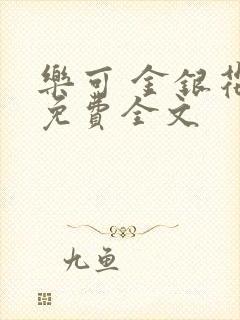 樂可 金銀花
免費全文
九魚